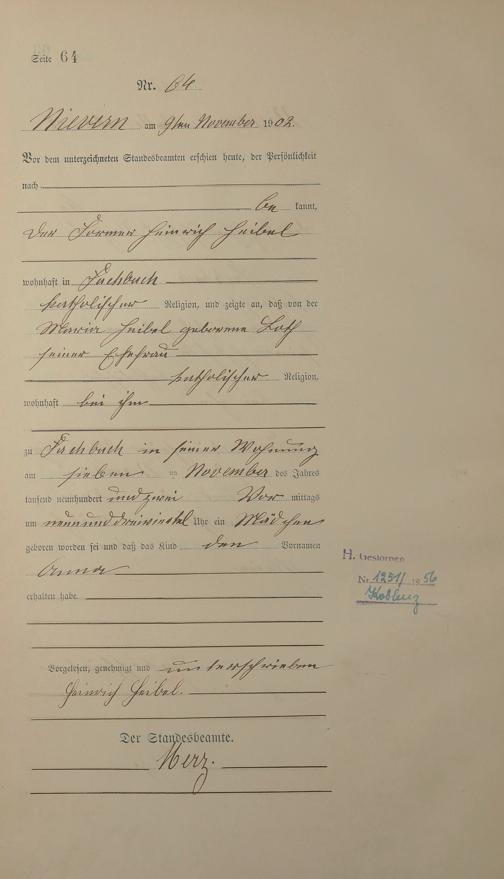 Seite 64
Nr. 64
Nievern am 9ten November 1902.
Vor dem unterzeichneten Standesbeamten erschien heute, der Persönlichkeit
nach
be kannt,
der Former Heinrich Heibel
wohnhaft in Fachbach
katholischer Religion, und zeigte an, daß von der
Maria Heibel geborene
seiner Ehefrau
katholischer Religion,
wohnhaft bei ihm
zu Fachbach in seiner Wohnung
am sieben ten November des Jahres
tausend neunhundert und zwei Vor mittags
um neununddreiviertel Uhr ein Mädchen
geboren worden sei und daß das Kind den Vornamen
Anna
erhalten habe.
H. Gestorben
Nr. 1251/1956
Koblenz
Vorgelesen, genehmigt und unterschrieben
Heinrich Heibel.
Der Standesbeamte.
Merz.